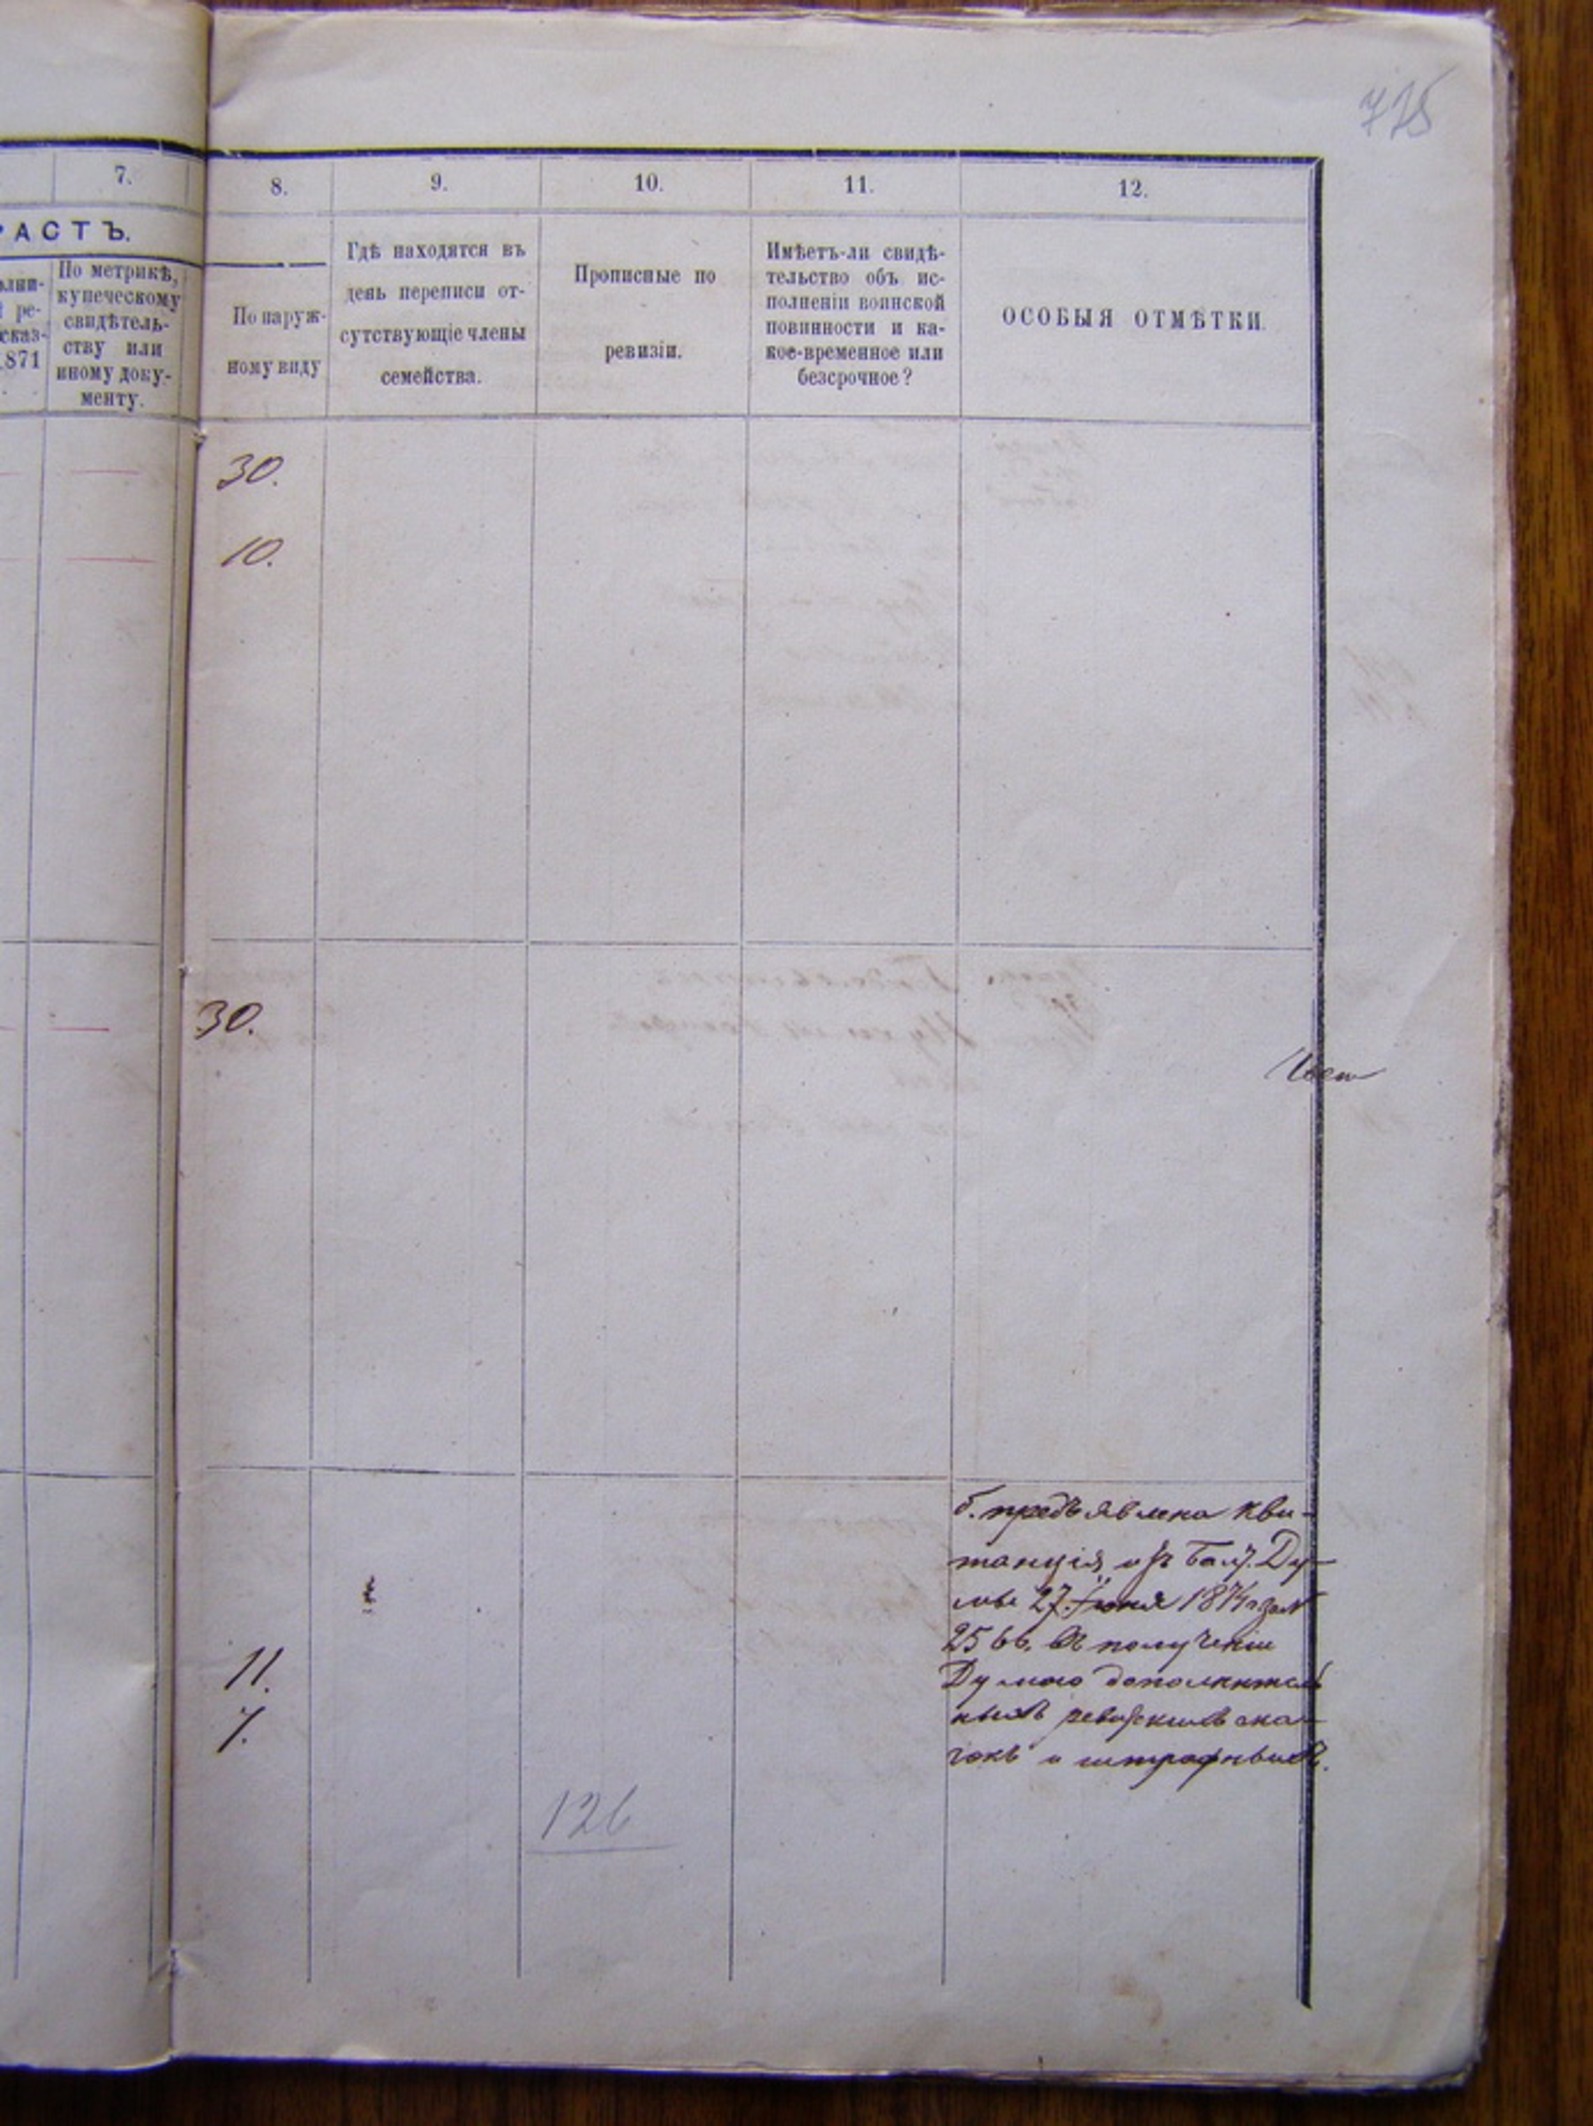 7. 8. 9. 10. 11. 12.
РАСТЪ.
По метрикѣ,
купеческому
свидѣтель-
ству или
иному доку-
менту.
1871
По наруж-
ному виду
Гдѣ находятся въ
день переписи от-
сутствующіе члены
семейства.
Прописные по
ревизіи.
Имѣетъ-ли свидѣ-
тельство объ ис-
полненіи воинской
повинности и ка-
кое-временное или
безсрочное?
ОСОБЫЯ ОТМѢТКИ.
30.
10.
30.
б. предъявлена кви-
танція изъ Балт. Ду-
мы 27. Іюня 1874 за №
2566. въ полученіи
Думою дополнитель
ныхъ ревизкихъ ска-
зокъ и штрафныхъ.
11.
7.
126